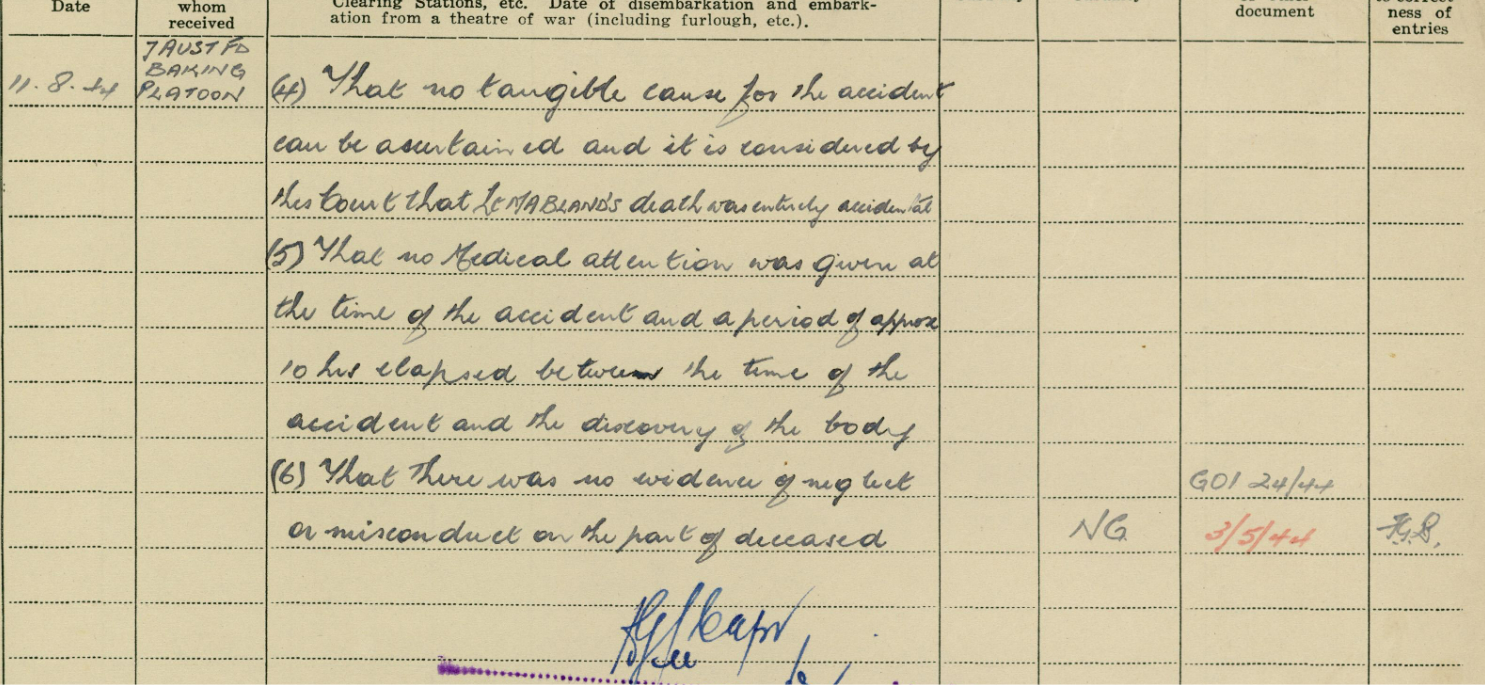 Date
whom
received
Clearing Stations, etc. Date of disembarkation and embark-
ation from a theatre of war (including furlough, etc.).
document
ness of
entries
11.8.44
7 AUST FD
BAKING
PLATOON
(4) That no tangible cause for the accident
can be ascertained and it is considered by
this Court that Lt MABLAND'S death was entirely accidental
(5) That no Medical attention was given at
the time of the accident and a period of approx
10 hrs elapsed between the time of the
accident and the discovery of the body
(6) That there was no evidence of neglect
or misconduct on the part of deceased
GO1 24/44
NG
3/5/44
Capt